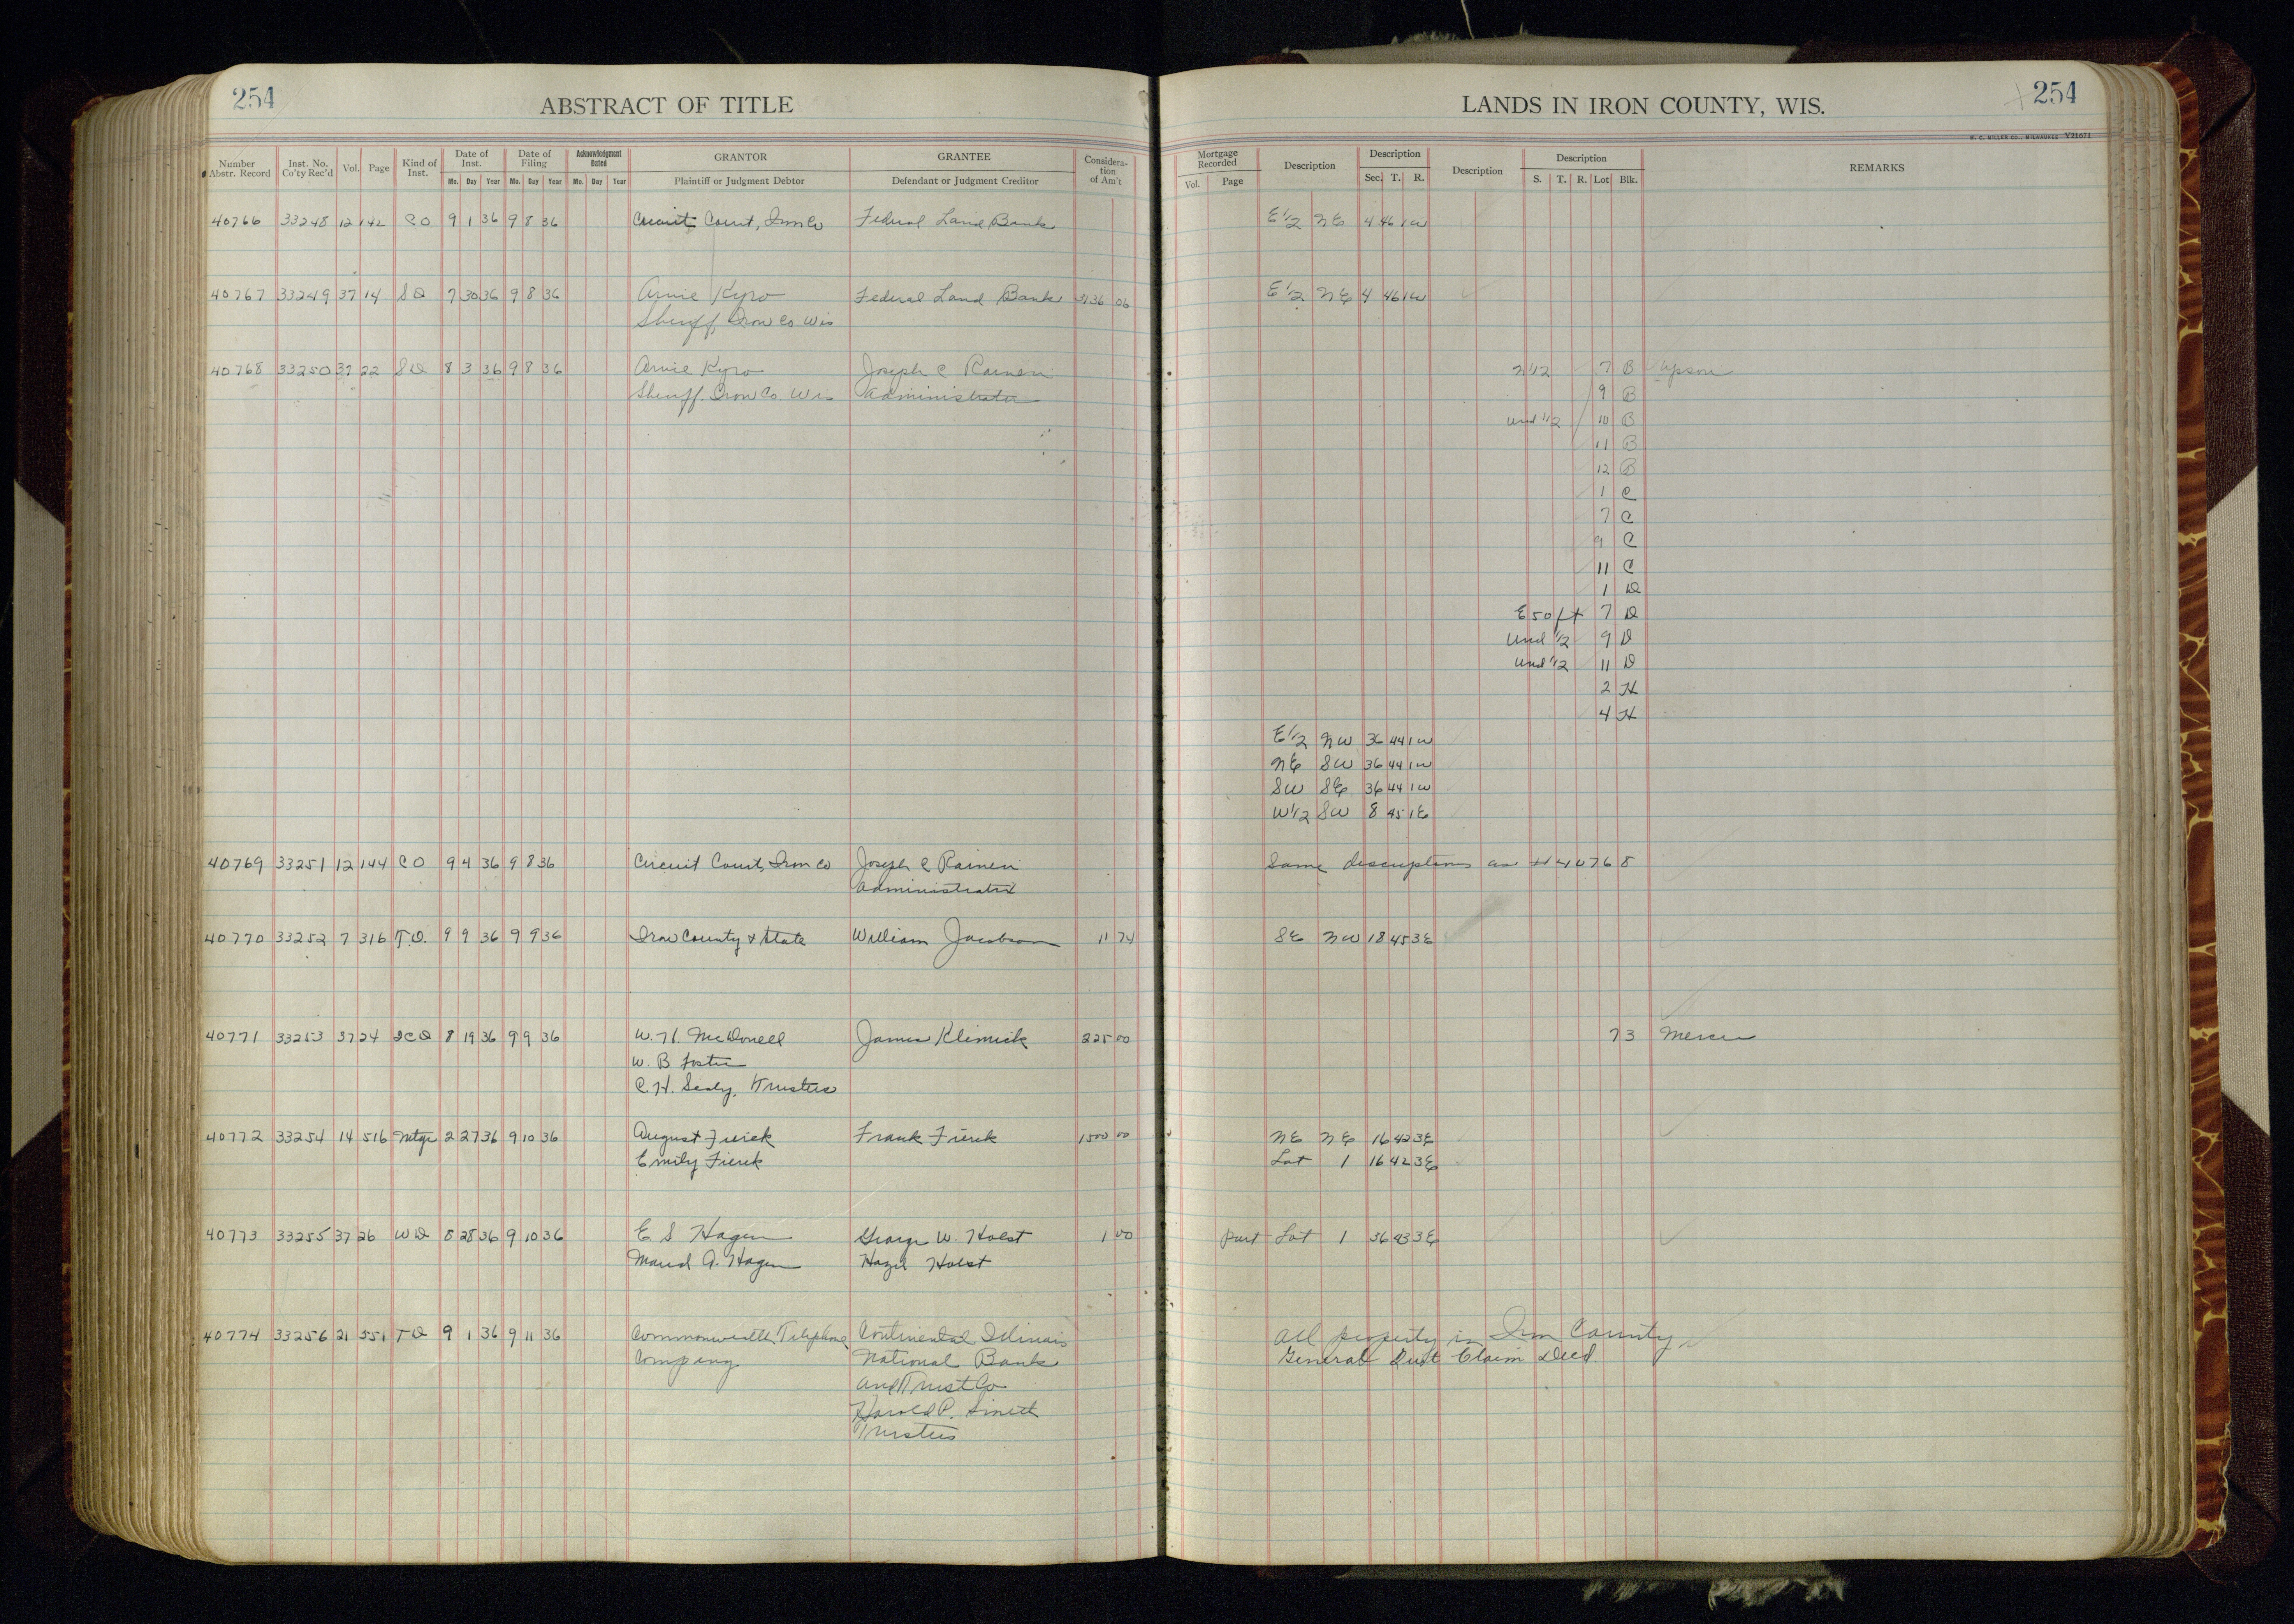 254 ABSTRACT OF TITLE
LANDS IN IRON COUNTY, WIS. 254
H. C. MILLER CO., MILWAUKEE Y21671
Number Abstr. Record Inst. No. Co'ty Rec'd Vol. Page Kind of Inst. Date of Inst. Date of Filing Acknowledgment Dated GRANTOR GRANTEE Consideration of Am't Mortgage Recorded Description Description Description Description REMARKS
Mo. Day Year Mo. Day Year Mo. Day Year Plaintiff or Judgment Debtor Defendant or Judgment Creditor Vol. Page Sec. T. R. S. T. R. Lot Blk.
40766 33248 12 142 CO 9 1 36 9 8 36 Circuit Court, Iron Co Federal Land Bank E 1/2 NE 4 46 1W
40767 33249 37 14 SD 7 30 36 9 8 36 Arvie Kyro Federal Land Bank 3136 06 E 1/2 NE 4 46 1W
Sheriff, Iron Co. Wis
40768 33250 37 22 SD 8 3 36 9 8 36 Arvie Kyro Joseph C Raineri N 1/2 7 B Upson
Sheriff. Iron Co Wis Administrator 9 B
Und 1/2 10 B
11 B
12 B
1 C
7 C
9 C
11 C
1 D
E 50 ft 7 D
Und 1/2 9 D
Und 1/2 11 D
2 H
4 H
E 1/2 NW 36 44 1W
NE SW 36 44 1W
SW SE 36 44 1W
W 1/2 SW 8 45 1E
40769 33251 12 144 CO 9 4 36 9 8 36 Circuit Court, Iron Co Joseph C Raineri Same descriptions as # 40768
Administrator
40770 33252 7 316 T.D. 9 9 36 9 9 36 Iron County & State William Jacobson 11 74 SE NW 18 45 3E
40771 33253 37 24 QCD 8 19 36 9 9 36 W. H. McDonell James Klimick 225 00 73 Mercer
W. B Foster
C. H. Sealy, Trustees
40772 33254 14 516 Mtge 2 27 36 9 10 36 August Fierek Frank Fierek 1500 00 NE NE 16 42 3E
Emily Fierek Lot 1 16 42 3E
40773 33255 37 26 WD 8 28 36 9 10 36 E S Hagen George W. Holst 1 00 Part Lot 1 36 43 3E
Maud A. Hagen Hazel Holst
40774 33256 21 551 TD 9 1 36 9 11 36 Commonwealth Telephone Continental Illinois All property in Iron County
Company National Bank General Quit Claim Deed.
and Trust Co
Harold P. Smeth
Trustees